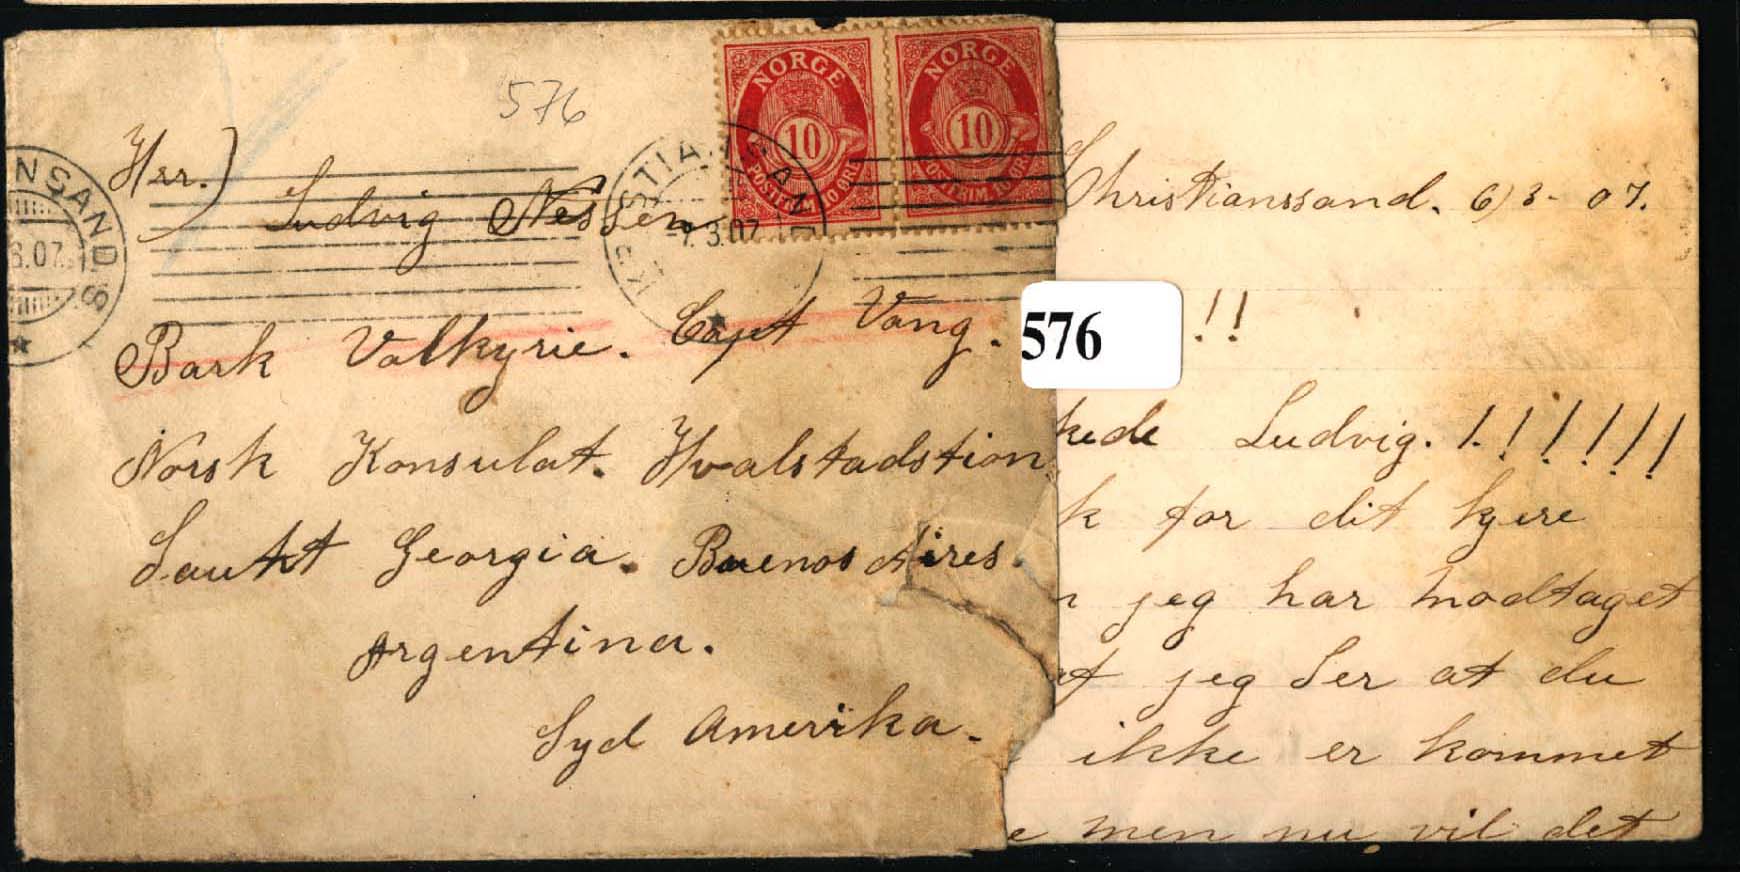 576
NORGE
10
POSTFRIM 10 ØRE
NORGE
10
POSTFRIM 10 ØRE
NSAND S
3.07
7.3.07
Herr.)
Ludvig Nessen
Bark Valkyrie. Capt Vang.
Norsk Konsulat. Hvalstadstion
Sautt Georgia. Buenos Aires.
Argentina.
Syd Amerika.
576
Christianssand. 6/3-07.
!!
kede Ludvig. !!!!!!!
k for dit kjere
n jeg har modtaget
at jeg Ser at du
ikke er kommet
e men nu vil det